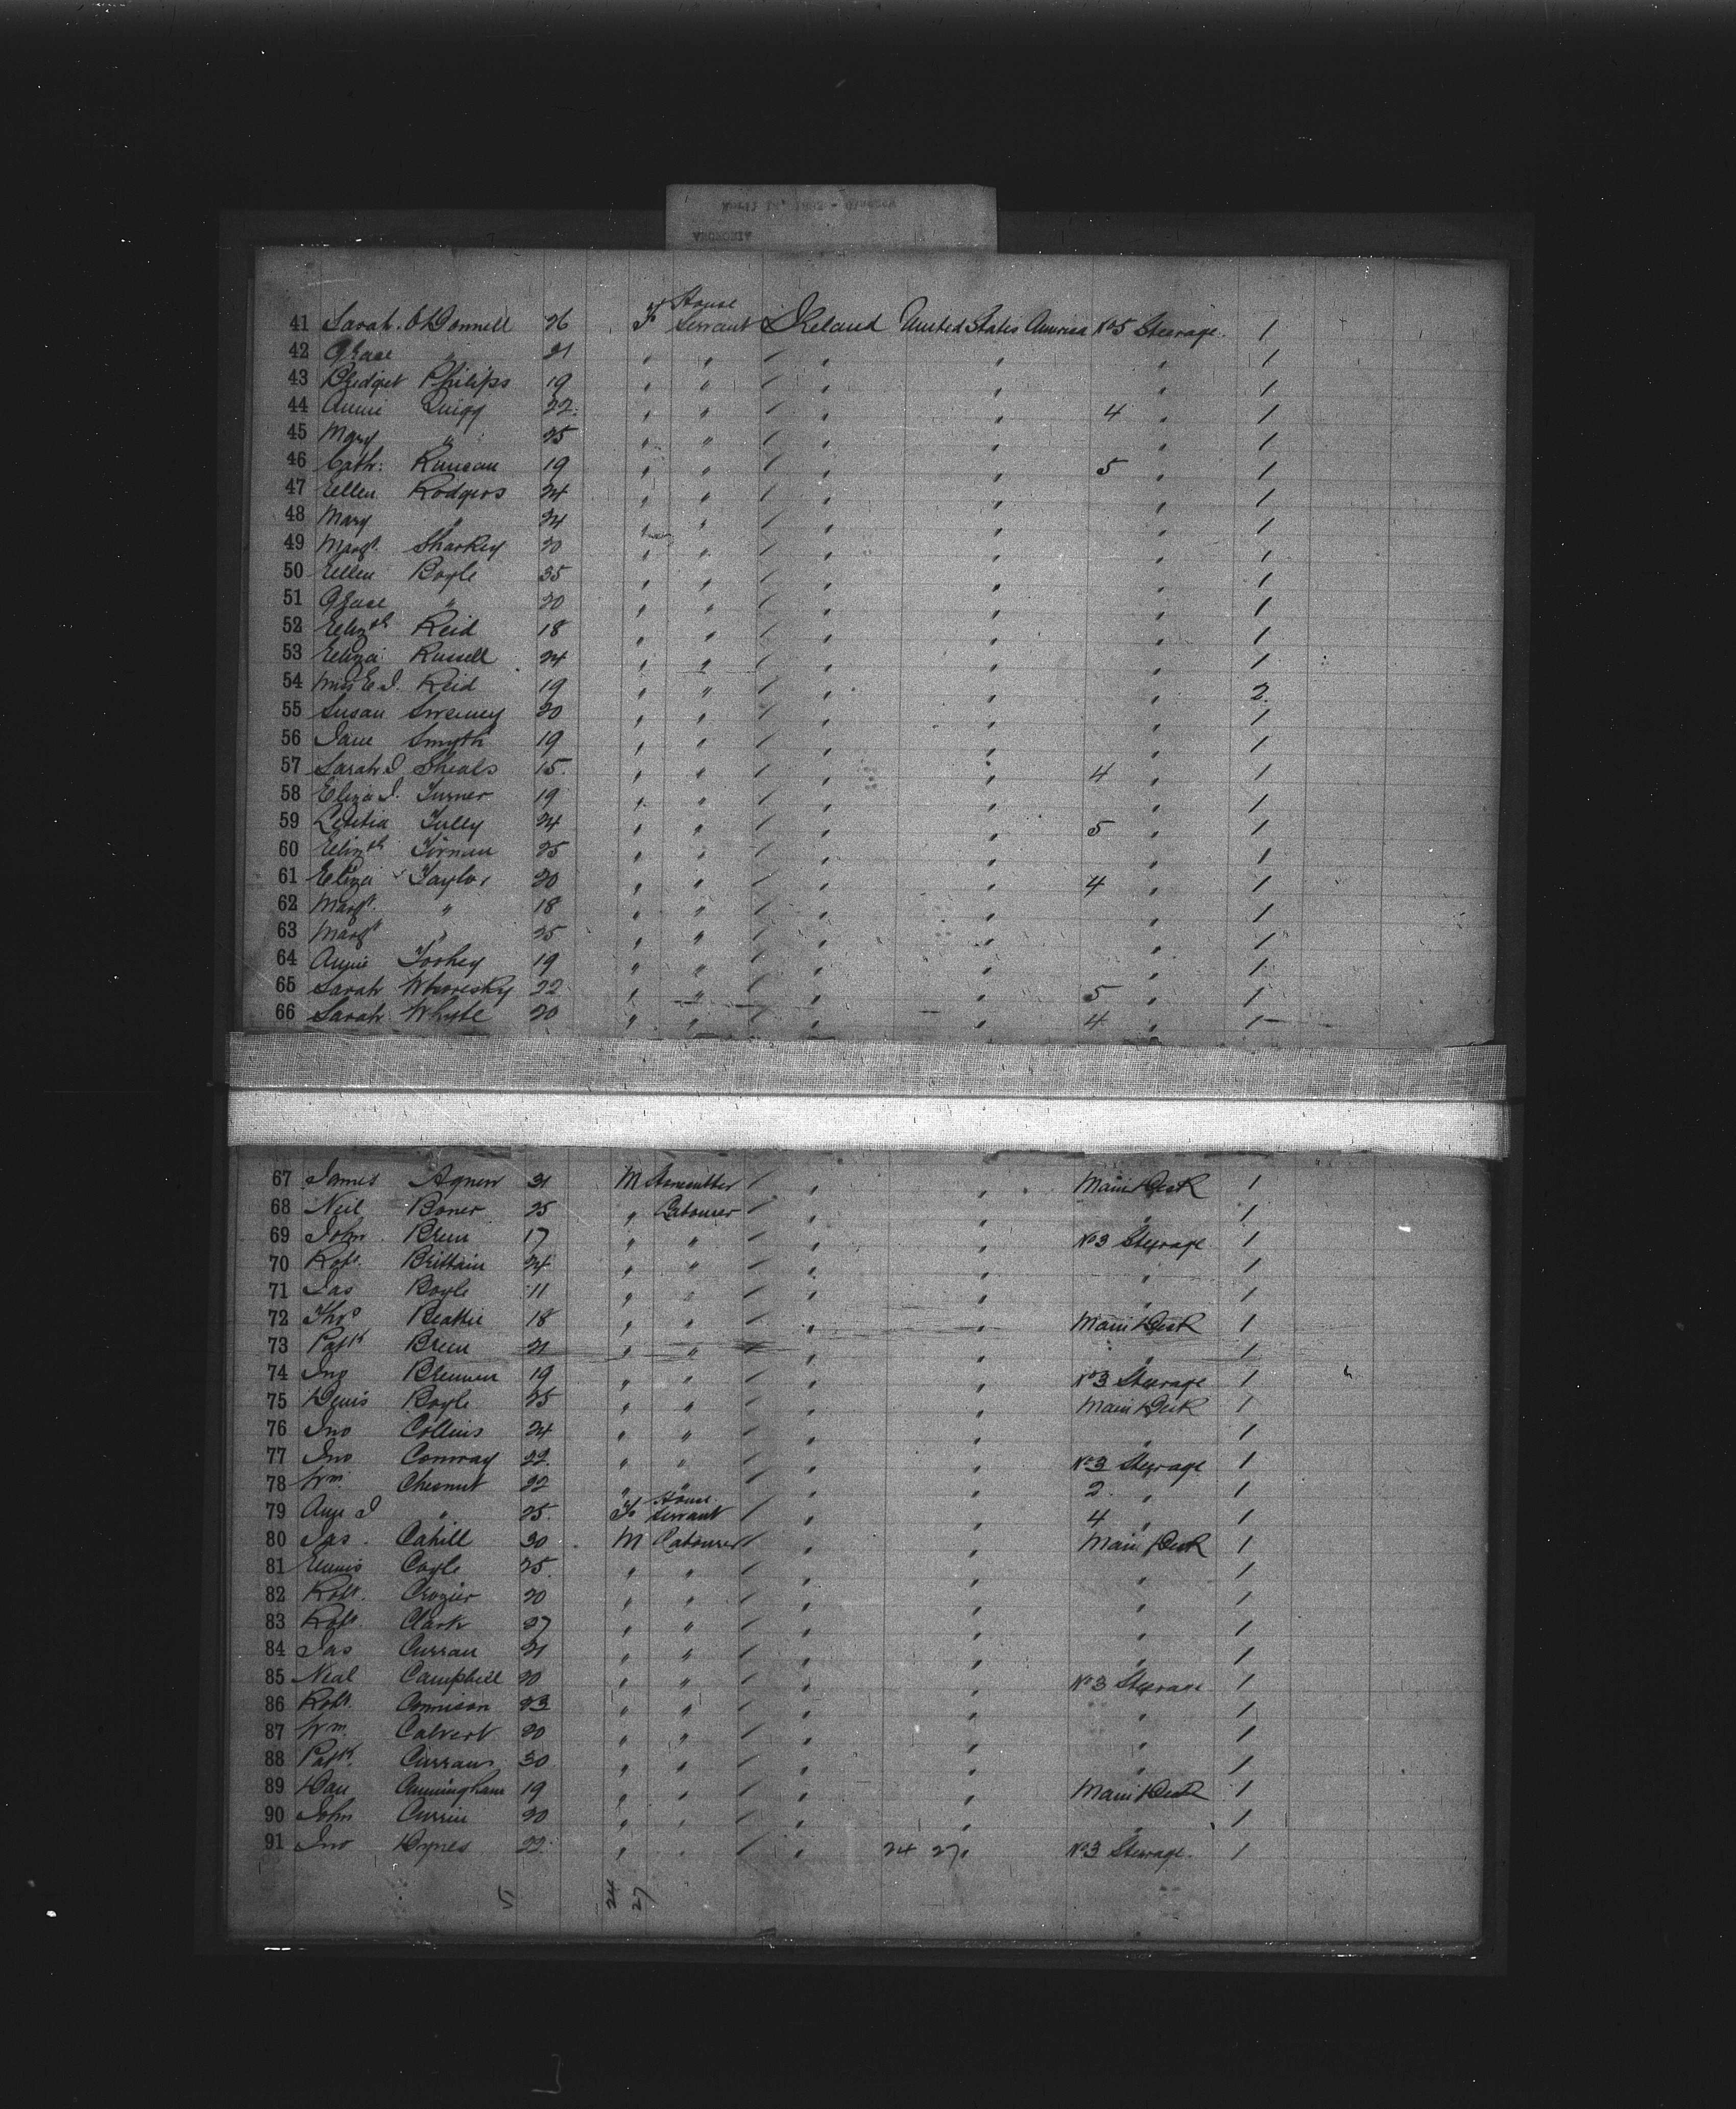 41 Sarah O'Donnell 26 F House Servant Ireland United States America No 5 Steerage 1
42 Grace " 21 " " / " " " 1
43 Bridget Philips 19 " " / " " " 1
44 Annie Quigg 22 " " / " " 4 " 1
45 Mary " 25 " " / " " " 1
46 Cath: 19 " " / " " 5 " 1
47 Ellen Rodgers 24 " " / " " " 1
48 Mary " 24 " " / " " " 1
49 Margt. Sharkey 20 " " / " " " 1
50 Ellen Boyle 35 " " / " " " 1
51 Grace " 20 " " / " " " 1
52 Elizth Reid 18 " " / " " " 1
53 Eliza Russell 24 " " / " " " 1
54 Miss E J. Reid 19 " " / " " " 2
55 Susan Sweeney 20 " " / " " " 1
56 Jane Smyth 19 " " / " " " 1
57 Sarah J Sheals 15 " " / " " 4 " 1
58 Eliza J. Turner 19 " " / " " " 1
59 Letitia Tully 24 " " / " " 5 " 1
60 Elizth 25 " " / " " " 1
61 Eliza Taylor 20 " " / " " 4 " 1
62 Margt. " 18 " " / " " " 1
63 Margt " 25 " " / " " " 1
64 Annie Toohey 19 " " / " " " 1
65 Sarah 22 " " / " " 5 " 1
66 Sarah Whyte 20 " " / " " 4 " 1
67 James Agnew 31 M Stonecutter / " " Main Deck 1
68 Neil Boner 25 " Labourer / " " " 1
69 John Breen 17 " " / " " No 3 Steerage 1
70 Robt. Brittain 24 " " / " " " 1
71 Jas Boyle 11 " " / " " " 1
72 Thos Beattie 18 " " / " " Main Deck 1
73 Patk Breen 21 " " / " " " 1
74 Jno 19 " " / " " No 3 Steerage 1
75 Denis Boyle 25 " " / " " Main Deck 1
76 Jno Collins 24 " " / " " " 1
77 Jno Conway 22 " " / " " No 3 Steerage 1
78 Wm. Chesnut 22 " " / " " 2 " 1
79 Ann J " 25 F House Servant / " " 4 " 1
80 Jas. Cahill 30 M Labourer / " " Main Deck 1
81 Coyle 25 " " / " " " 1
82 Robt. Crozier 20 " " / " " " 1
83 Robt Clark 27 " " / " " " 1
84 Jas Curran 21 " " / " " " 1
85 Neal Campbell 20 " " / " " No 3 Steerage 1
86 Robt. 23 " " / " " " 1
87 Wm. Calvert 20 " " / " " " 1
88 Patk. Curran 30 " " / " " " 1
89 Dan Cunningham 19 " " / " " Main Deck 1
90 John Currin 20 " " / " " " 1
91 Jno Hynes 22 " " / " 24 27 " No 3 Steerage 1
24 27